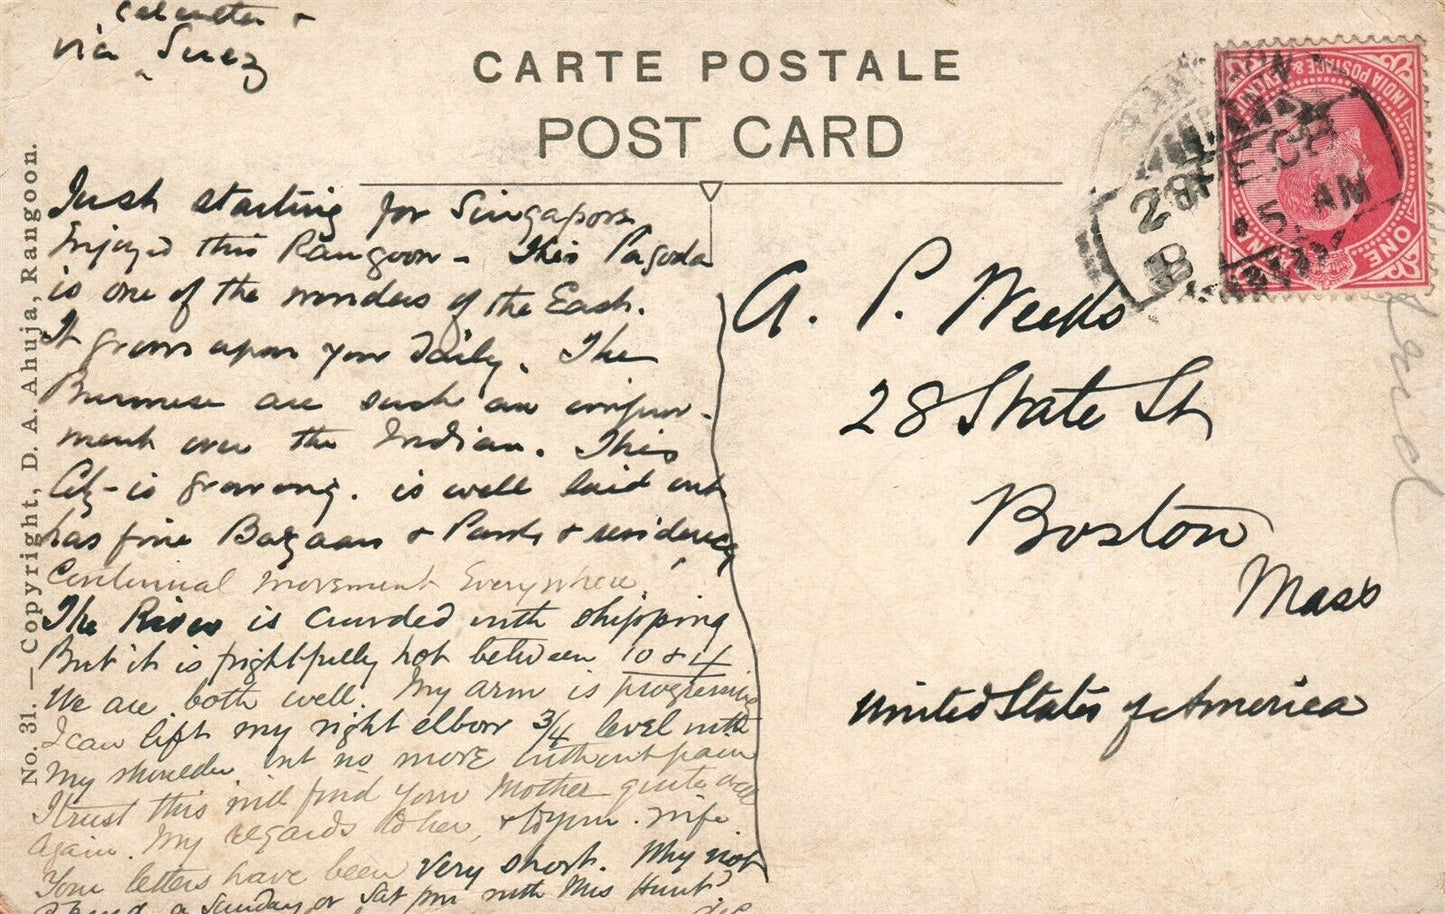 Calcutta &
via Suez
CARTE POSTALE
POST CARD
No. 31. — Copyright, D. A. Ahuja, Rangoon.
INDIA POSTAGE & REVENUE
ONE
28
5 AM
Just starting for Singapore
Enjoyed this Rangoon - This Pagoda
is one of the wonders of the East.
It grows upon you daily. The
Burmese are such an improve-
ment over the Indian. This
City - is growing. is well laid out
has fine Bazaars & Parks & residences
Centennial Movement Everywhere
The River is crowded with shipping
But it is frightfully hot between 10 & 4
We are both well. My arm is progressive
I can lift my right elbow 3/4 level with
my shoulder but no more without pain
I trust this will find your Mother quite well
again. My regards to her, & to your wife
Your letters have been very short. Why not
Spend a Sunday or Sat pm with Mrs Hunt?
A. P. Weeks
28 State St
Boston
Mass
United States of America